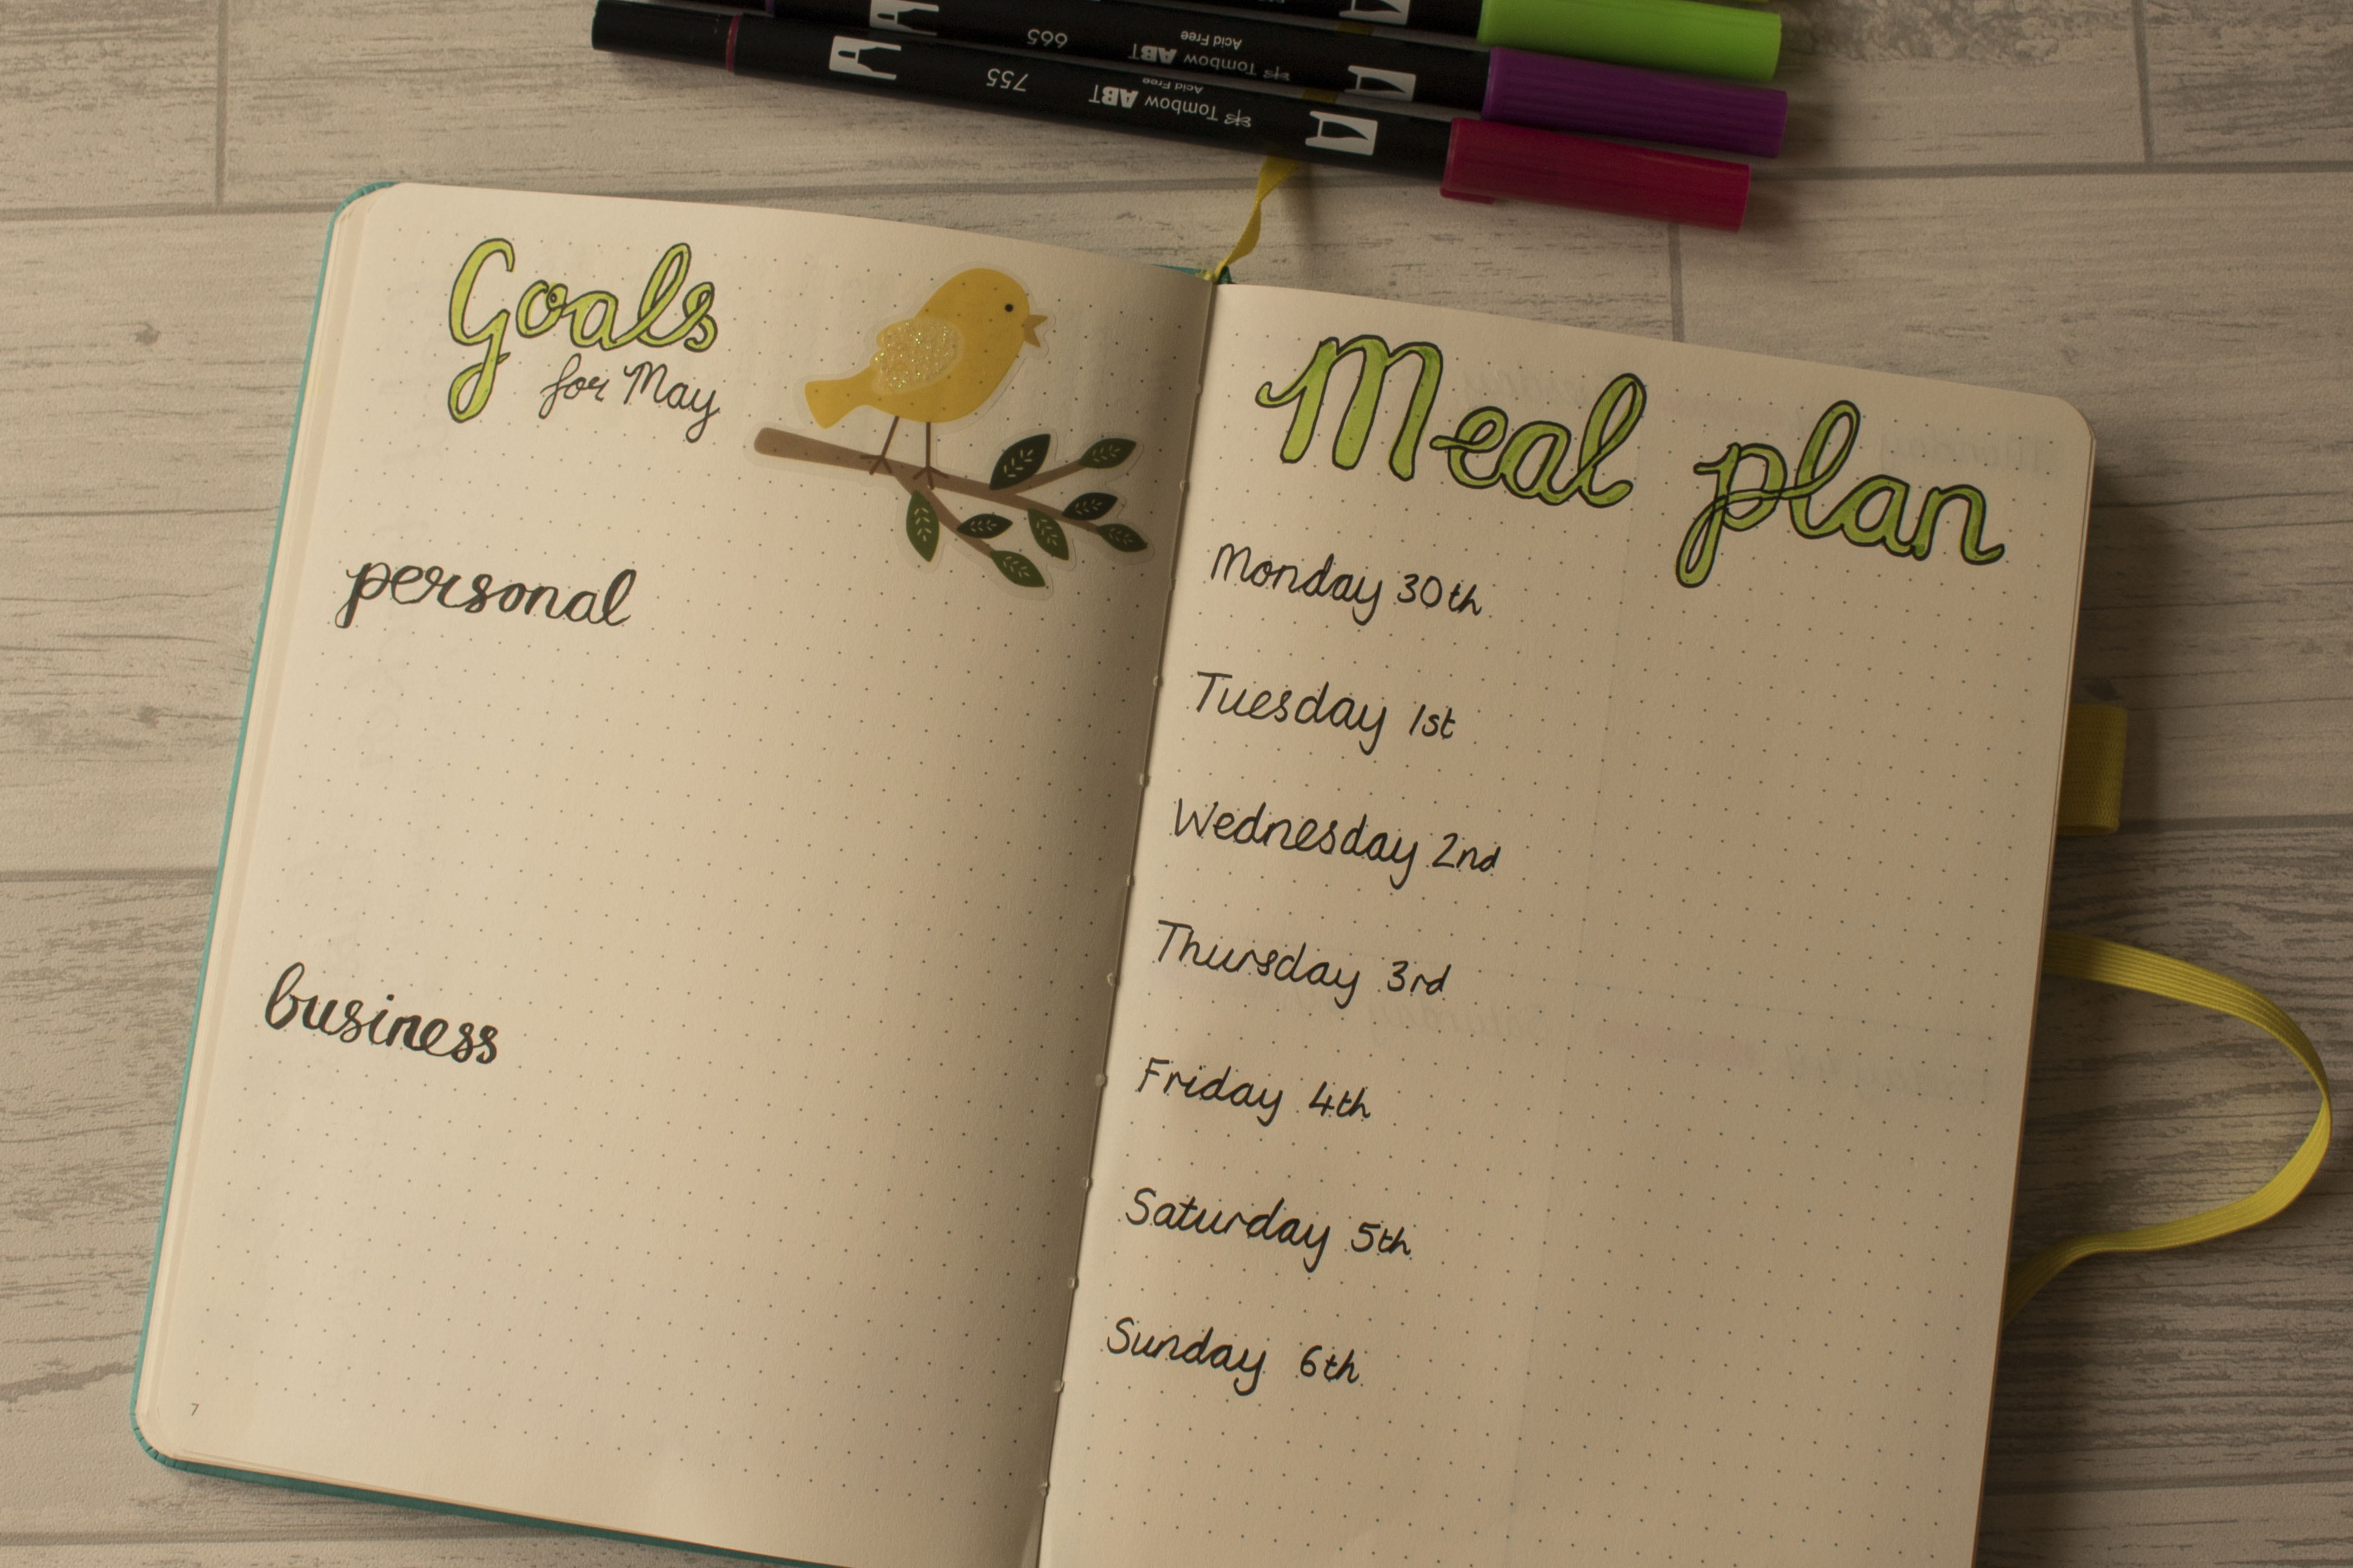 Tombow ABT
Acid Free
665
Tombow ABT
Acid Free
755
Goals
for May
personal
business
7
Meal plan
Monday 30th
Tuesday 1st
Wednesday 2nd
Thursday 3rd
Friday 4th
Saturday 5th
Sunday 6th